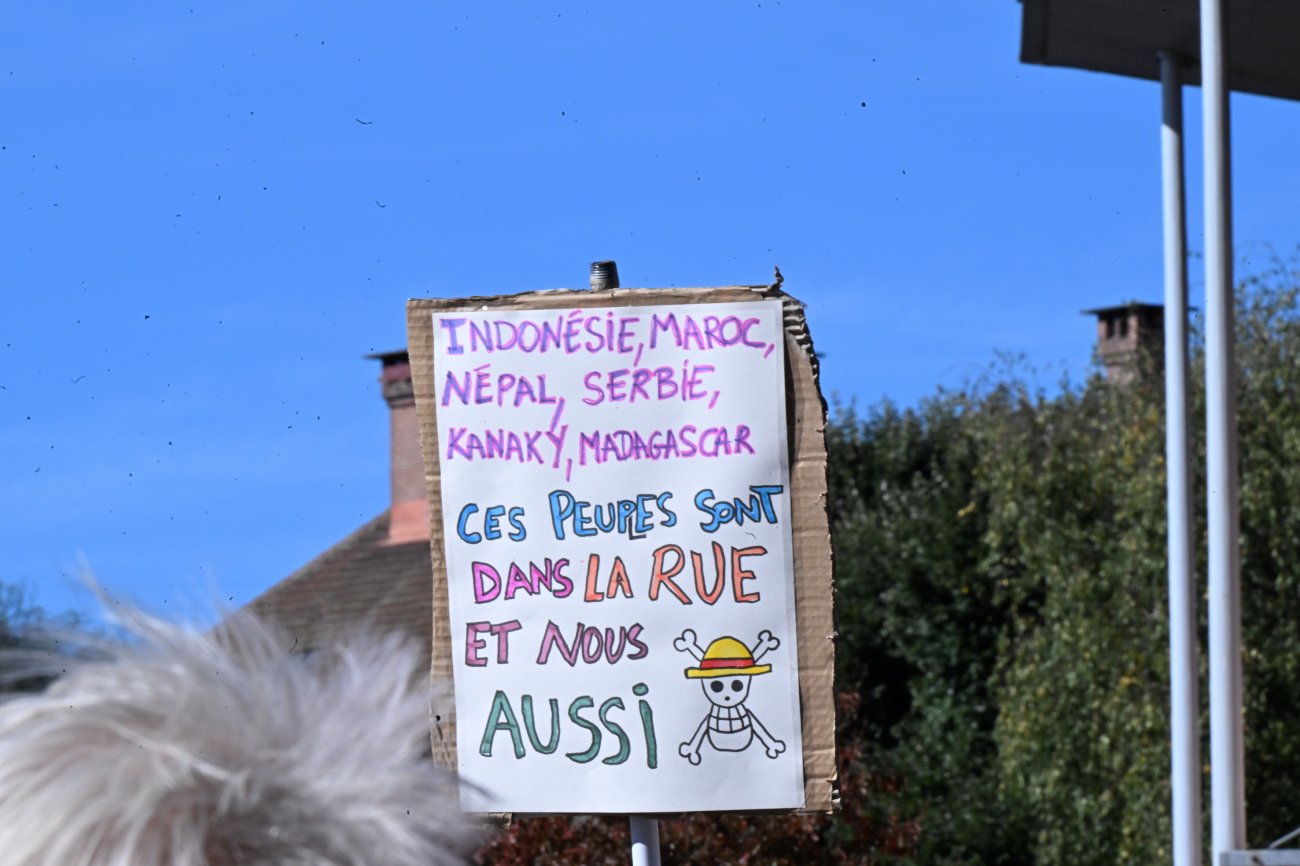 INDONÉSIE, MAROC,
NÉPAL, SERBIE,
KANAKY, MADAGASCAR
CES PEUPLES SONT
DANS LA RUE
ET NOUS
AUSSI